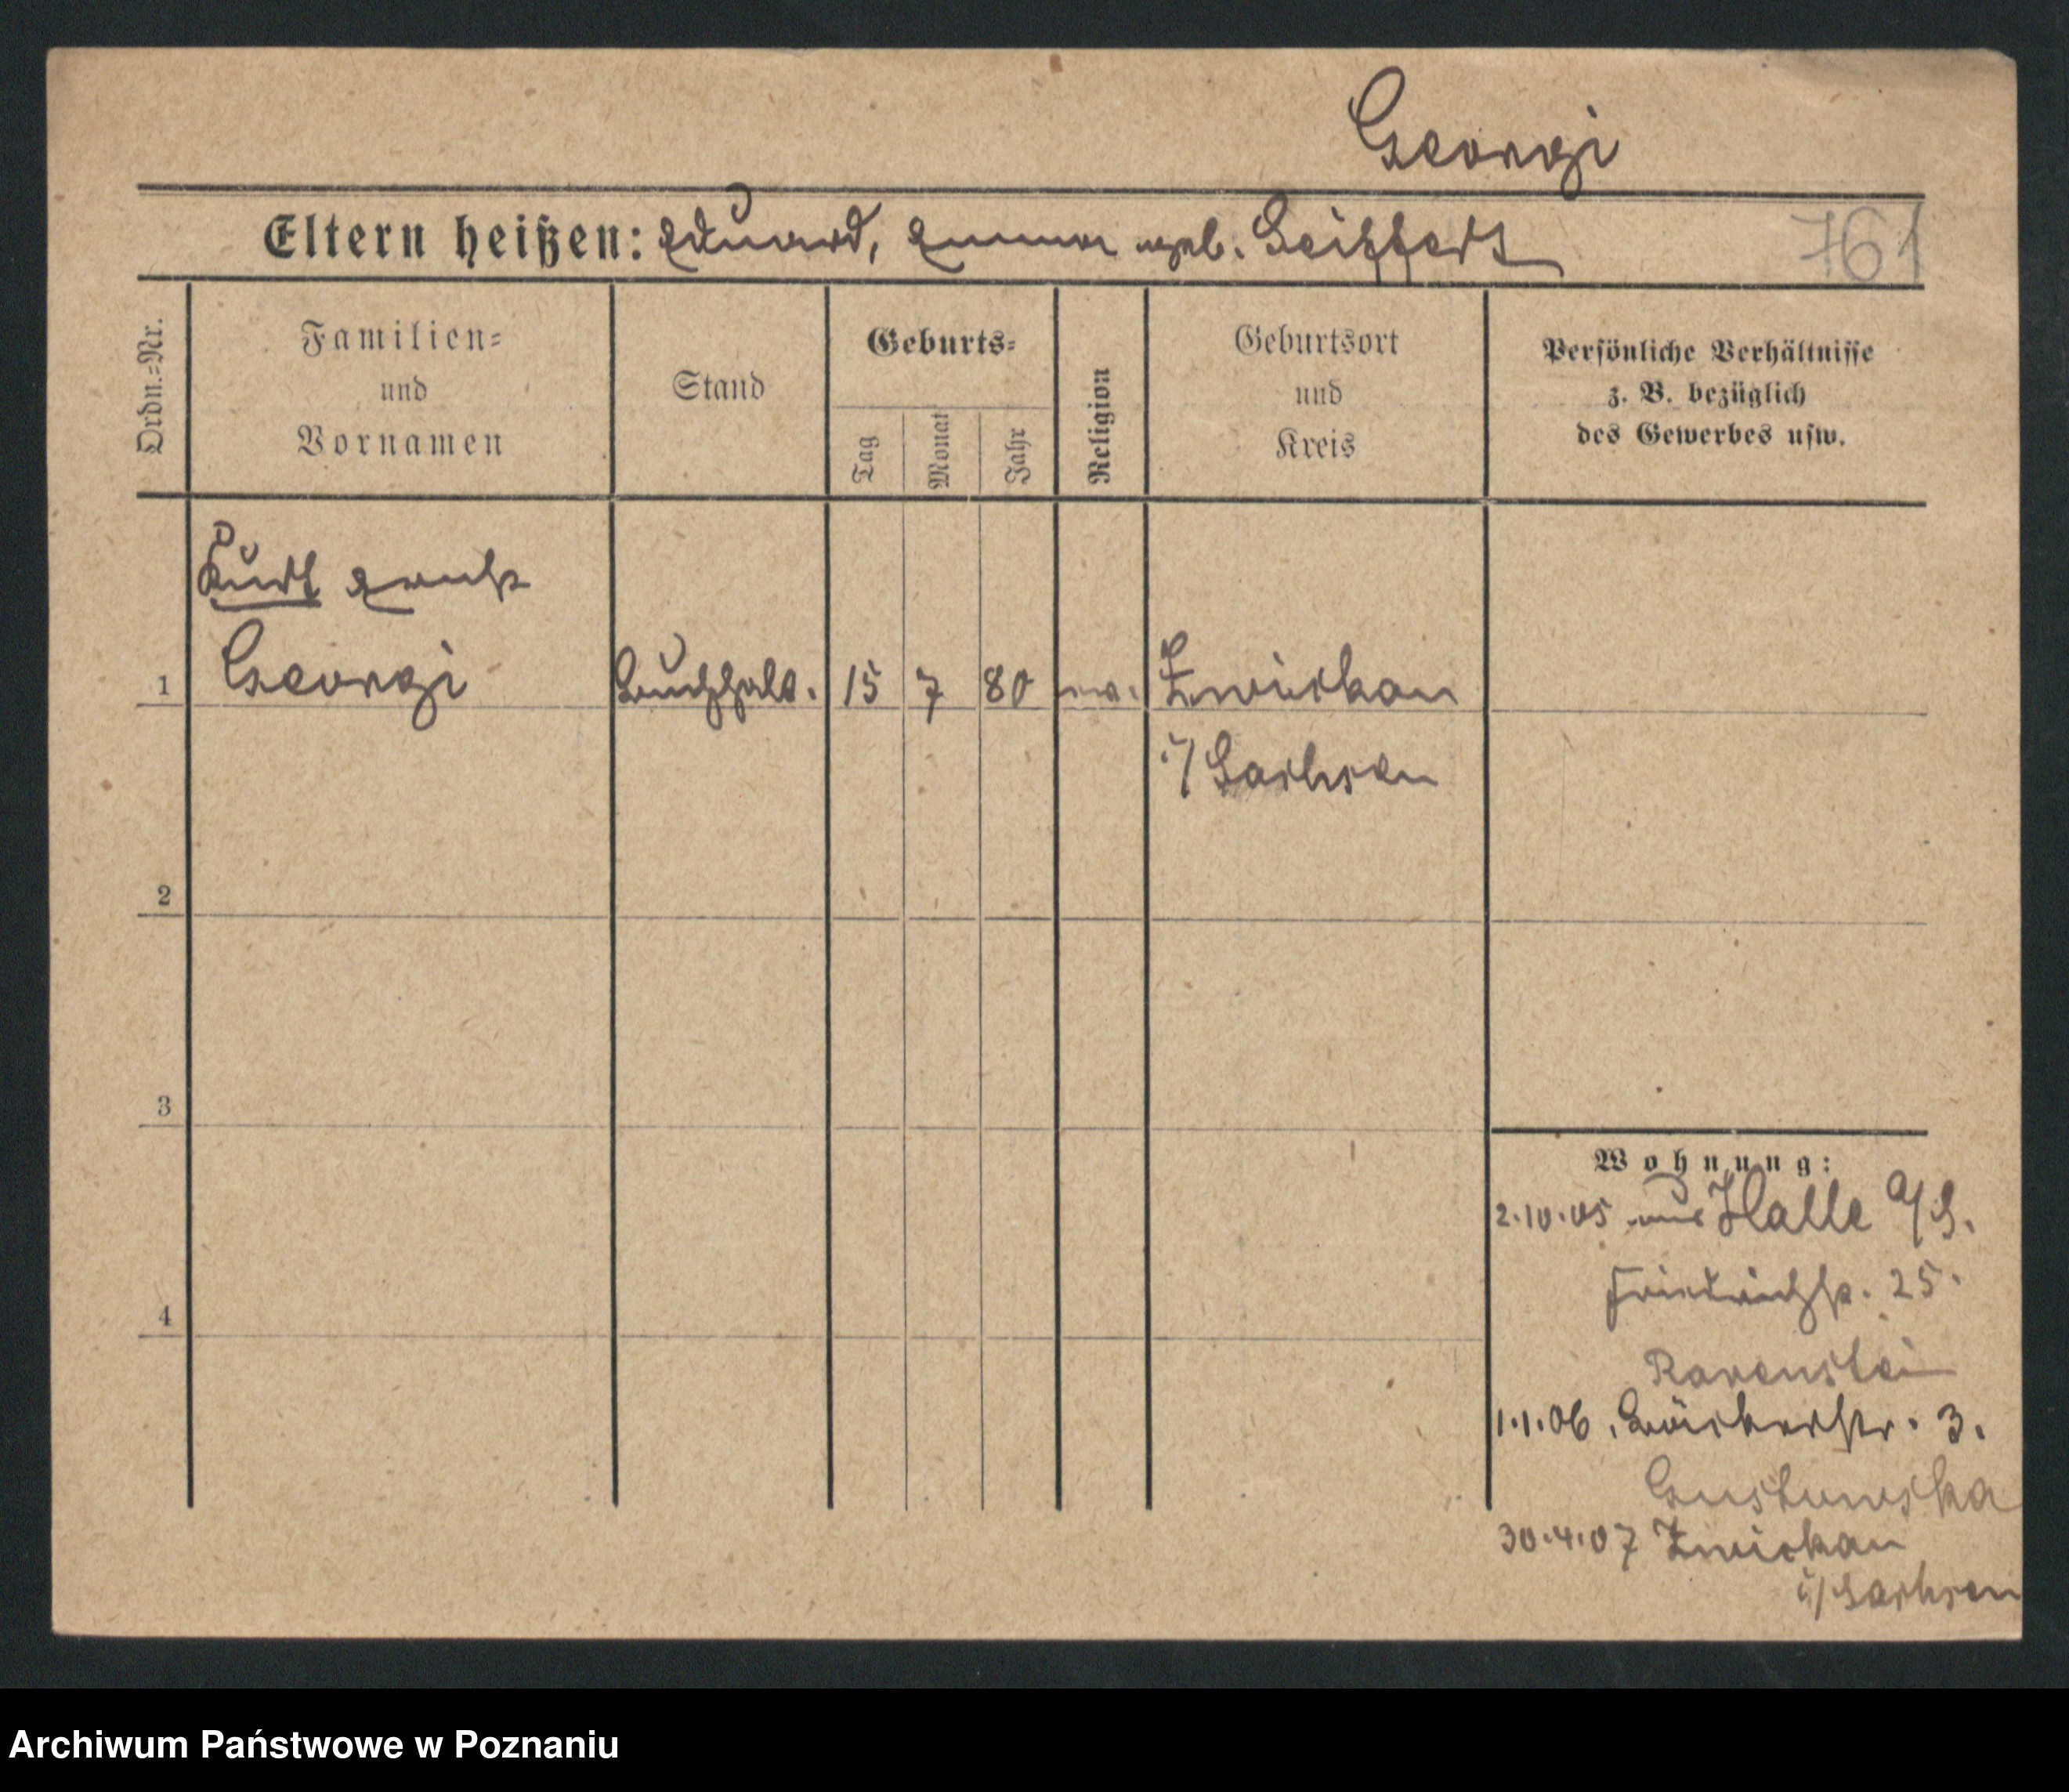 Georgi
Eltern heißen: Eduard, Emma geb. Seiffert
761
Ordn.-Nr.
Familien-
und
Vornamen
Stand
Geburts-
Tag
Monat
Jahr
Religion
Geburtsort
und
Kreis
Persönliche Verhältnisse
z. B. bezüglich
des Gewerbes usw.
Kurt Ernst
1 Georgi Buchhalt. 15 7 80 ev. Zwickau
i/Sachsen
2
3
4
Wohnung:
2.10.05 aus Halle a/S.
Friedrichstr. 25.
Ravenstein
1.1.06. Bäckerstr. 3.
30.4.07 Zwickau
i/Sachsen
Archiwum Państwowe w Poznaniu